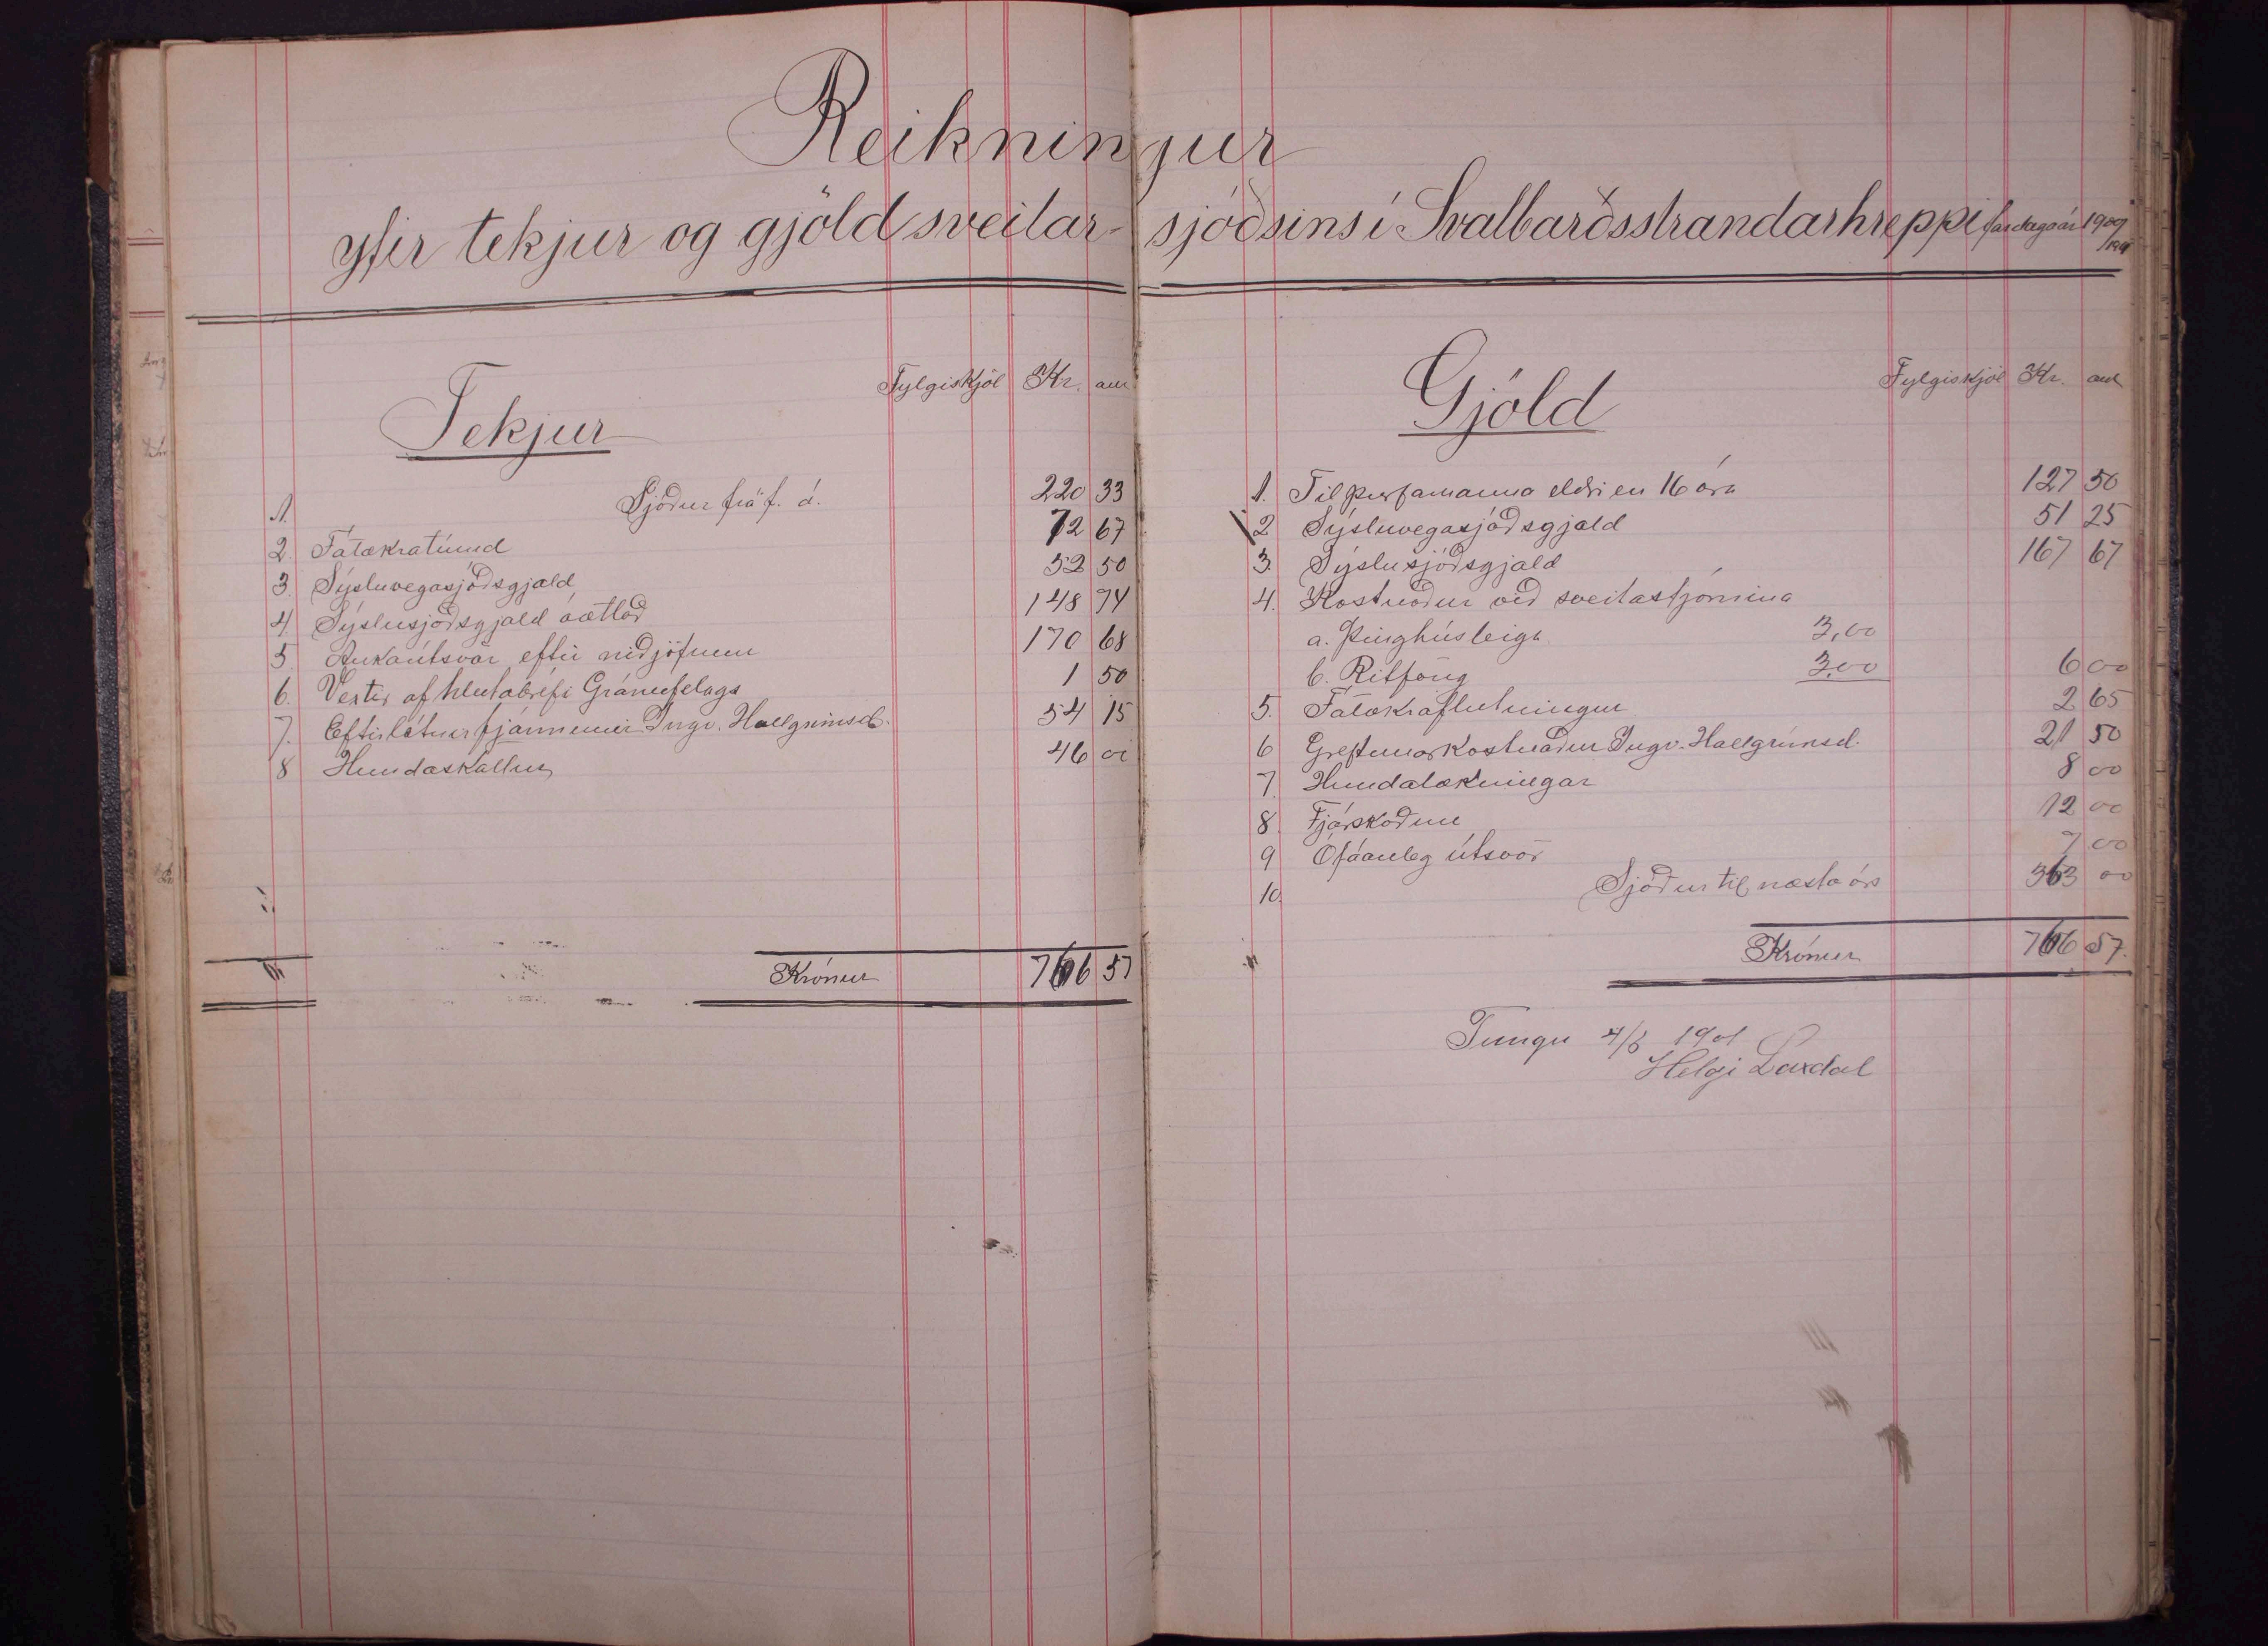 Reikningur
yfir tekjur og gjöld sveitar-sjóðsins í Svalbarðsstrandarhreppi fardagaár 1900/1901
Tekjur
Fylgiskjöl Kr. aur
1. Sjóður frá f. á. 220 33
2. Fátækratíund 72 67
3. Sýsluvegasjóðsgjald 52 50
4. Sýslusjóðsgjald áætlað 148 74
5. Aukaútsvör eftir niðjöfnun 170 68
6. Vextir af hlutabréfi Gránufélags 1 50
7. Eftirlátnir fjármunir Ingv. Hallgrímsd. 54 15
8 Hundaskattur 46 00
Krónur 766 57
Gjöld
Fylgiskjöl Kr. aur
1. Til þurfamanna eldri en 16 ára 127 50
2 Sýsluvegasjóðsgjald 51 25
3. Sýslusjóðsgjald 167 67
4. Kostnaður við sveitastjórnina
a. Þinghúsleiga 3,00
b. Ritföng 3,00 6 00
5. Fátækraflutningur 2 65
6 Greftunarkostnaður Ingv. Hallgrímsd. 21 50
7. Hundalækningar 8 00
8. Fjárskoðun 12 00
9 Ófáanleg útsvör 7 00
10. Sjóður til næsta árs 363 00
Krónur 766 57.
Tungu 4/6 1901
Helgi Laxdal